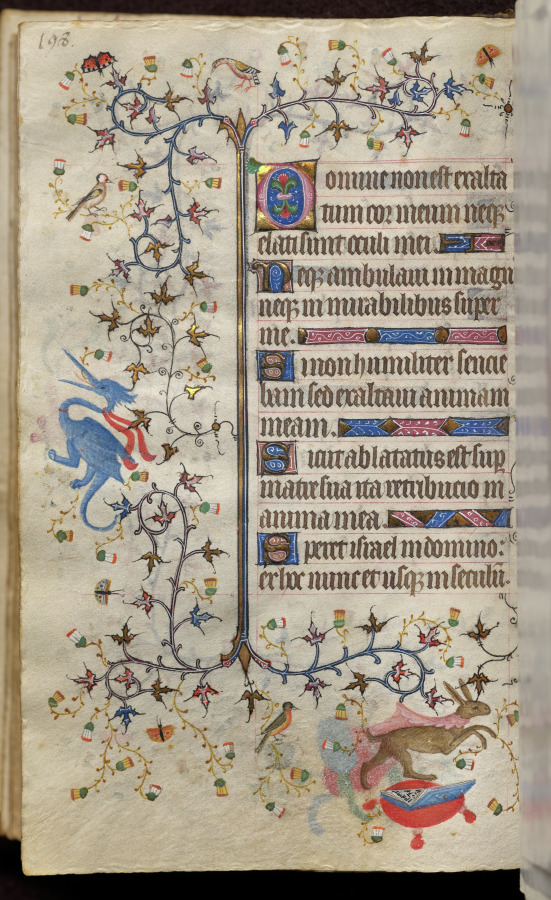 198.
Domine non est exalta
tum cor meum neqꝫ
elati sunt oculi mei.
Neqꝫ ambulaui in magn
neqꝫ in mirabilibus super
me.
Si non humiliter sencie
bam sed exaltaui animam
meam.
Sicut ablatatus est sup
matre sua ita retribucio in
anima mea.
Speret israel in domino:
ex hoc nunc et usqꝫ in seculū.